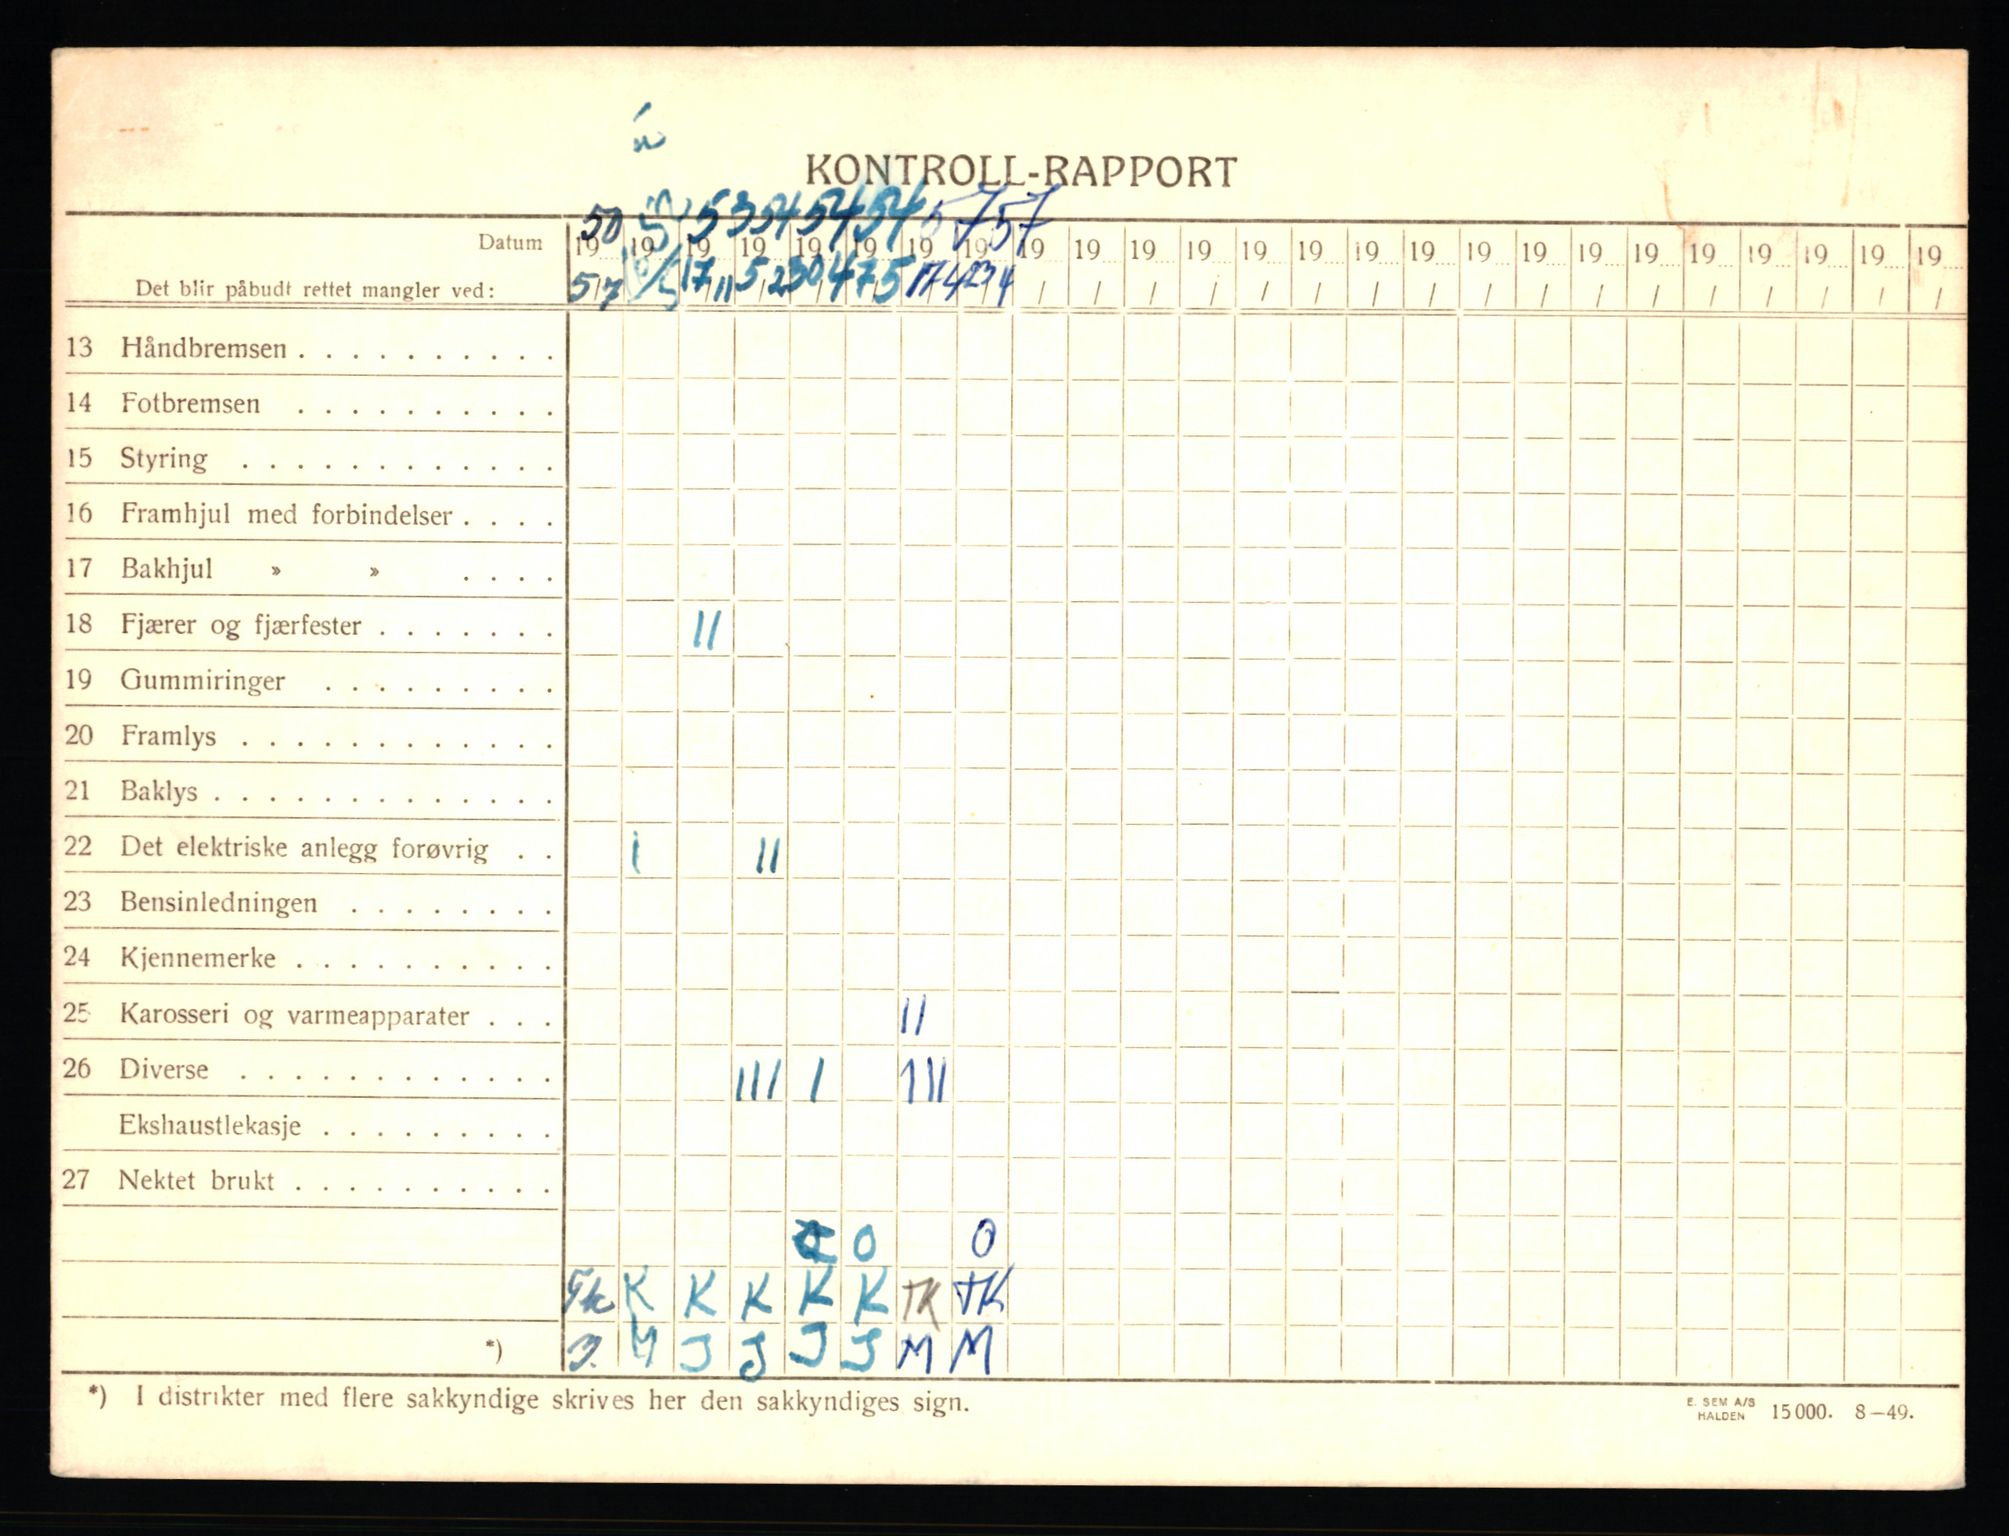 KONTROLL-RAPPORT
50 53 54 54 54 57 57
Datum 19 19 19 19 19 19 19 19 19 19 19 19 19 19 19 19 19 19 19 19 19 19 19 19 19
Det blir påbudt rettet mangler ved: 5/7 17/11 5/2 30/4 7/5 17/4 23/4 / / / / / / / / / / / / / / / / /
13 Håndbremsen . . . . . . . . . .
14 Fotbremsen . . . . . . . . . .
15 Styring . . . . . . . . . . . .
16 Framhjul med forbindelser . . . .
17 Bakhjul » » . . . .
18 Fjærer og fjærfester . . . . . . . II
19 Gummiringer . . . . . . . . .
20 Framlys . . . . . . . . . . . .
21 Baklys . . . . . . . . . . . . .
22 Det elektriske anlegg forøvrig . . I II
23 Bensinledningen . . . . . . . .
24 Kjennemerke . . . . . . . . . .
25 Karosseri og varmeapparater . . . II
26 Diverse . . . . . . . . . . . . III I III
Ekshaustlekasje . . . . . . . . .
27 Nektet brukt . . . . . . . . . .
O O
K K K K K TK TK
*) M J J J J M M
*) I distrikter med flere sakkyndige skrives her den sakkyndiges sign.
E. SEM A/S
HALDEN 15000. 8-49.